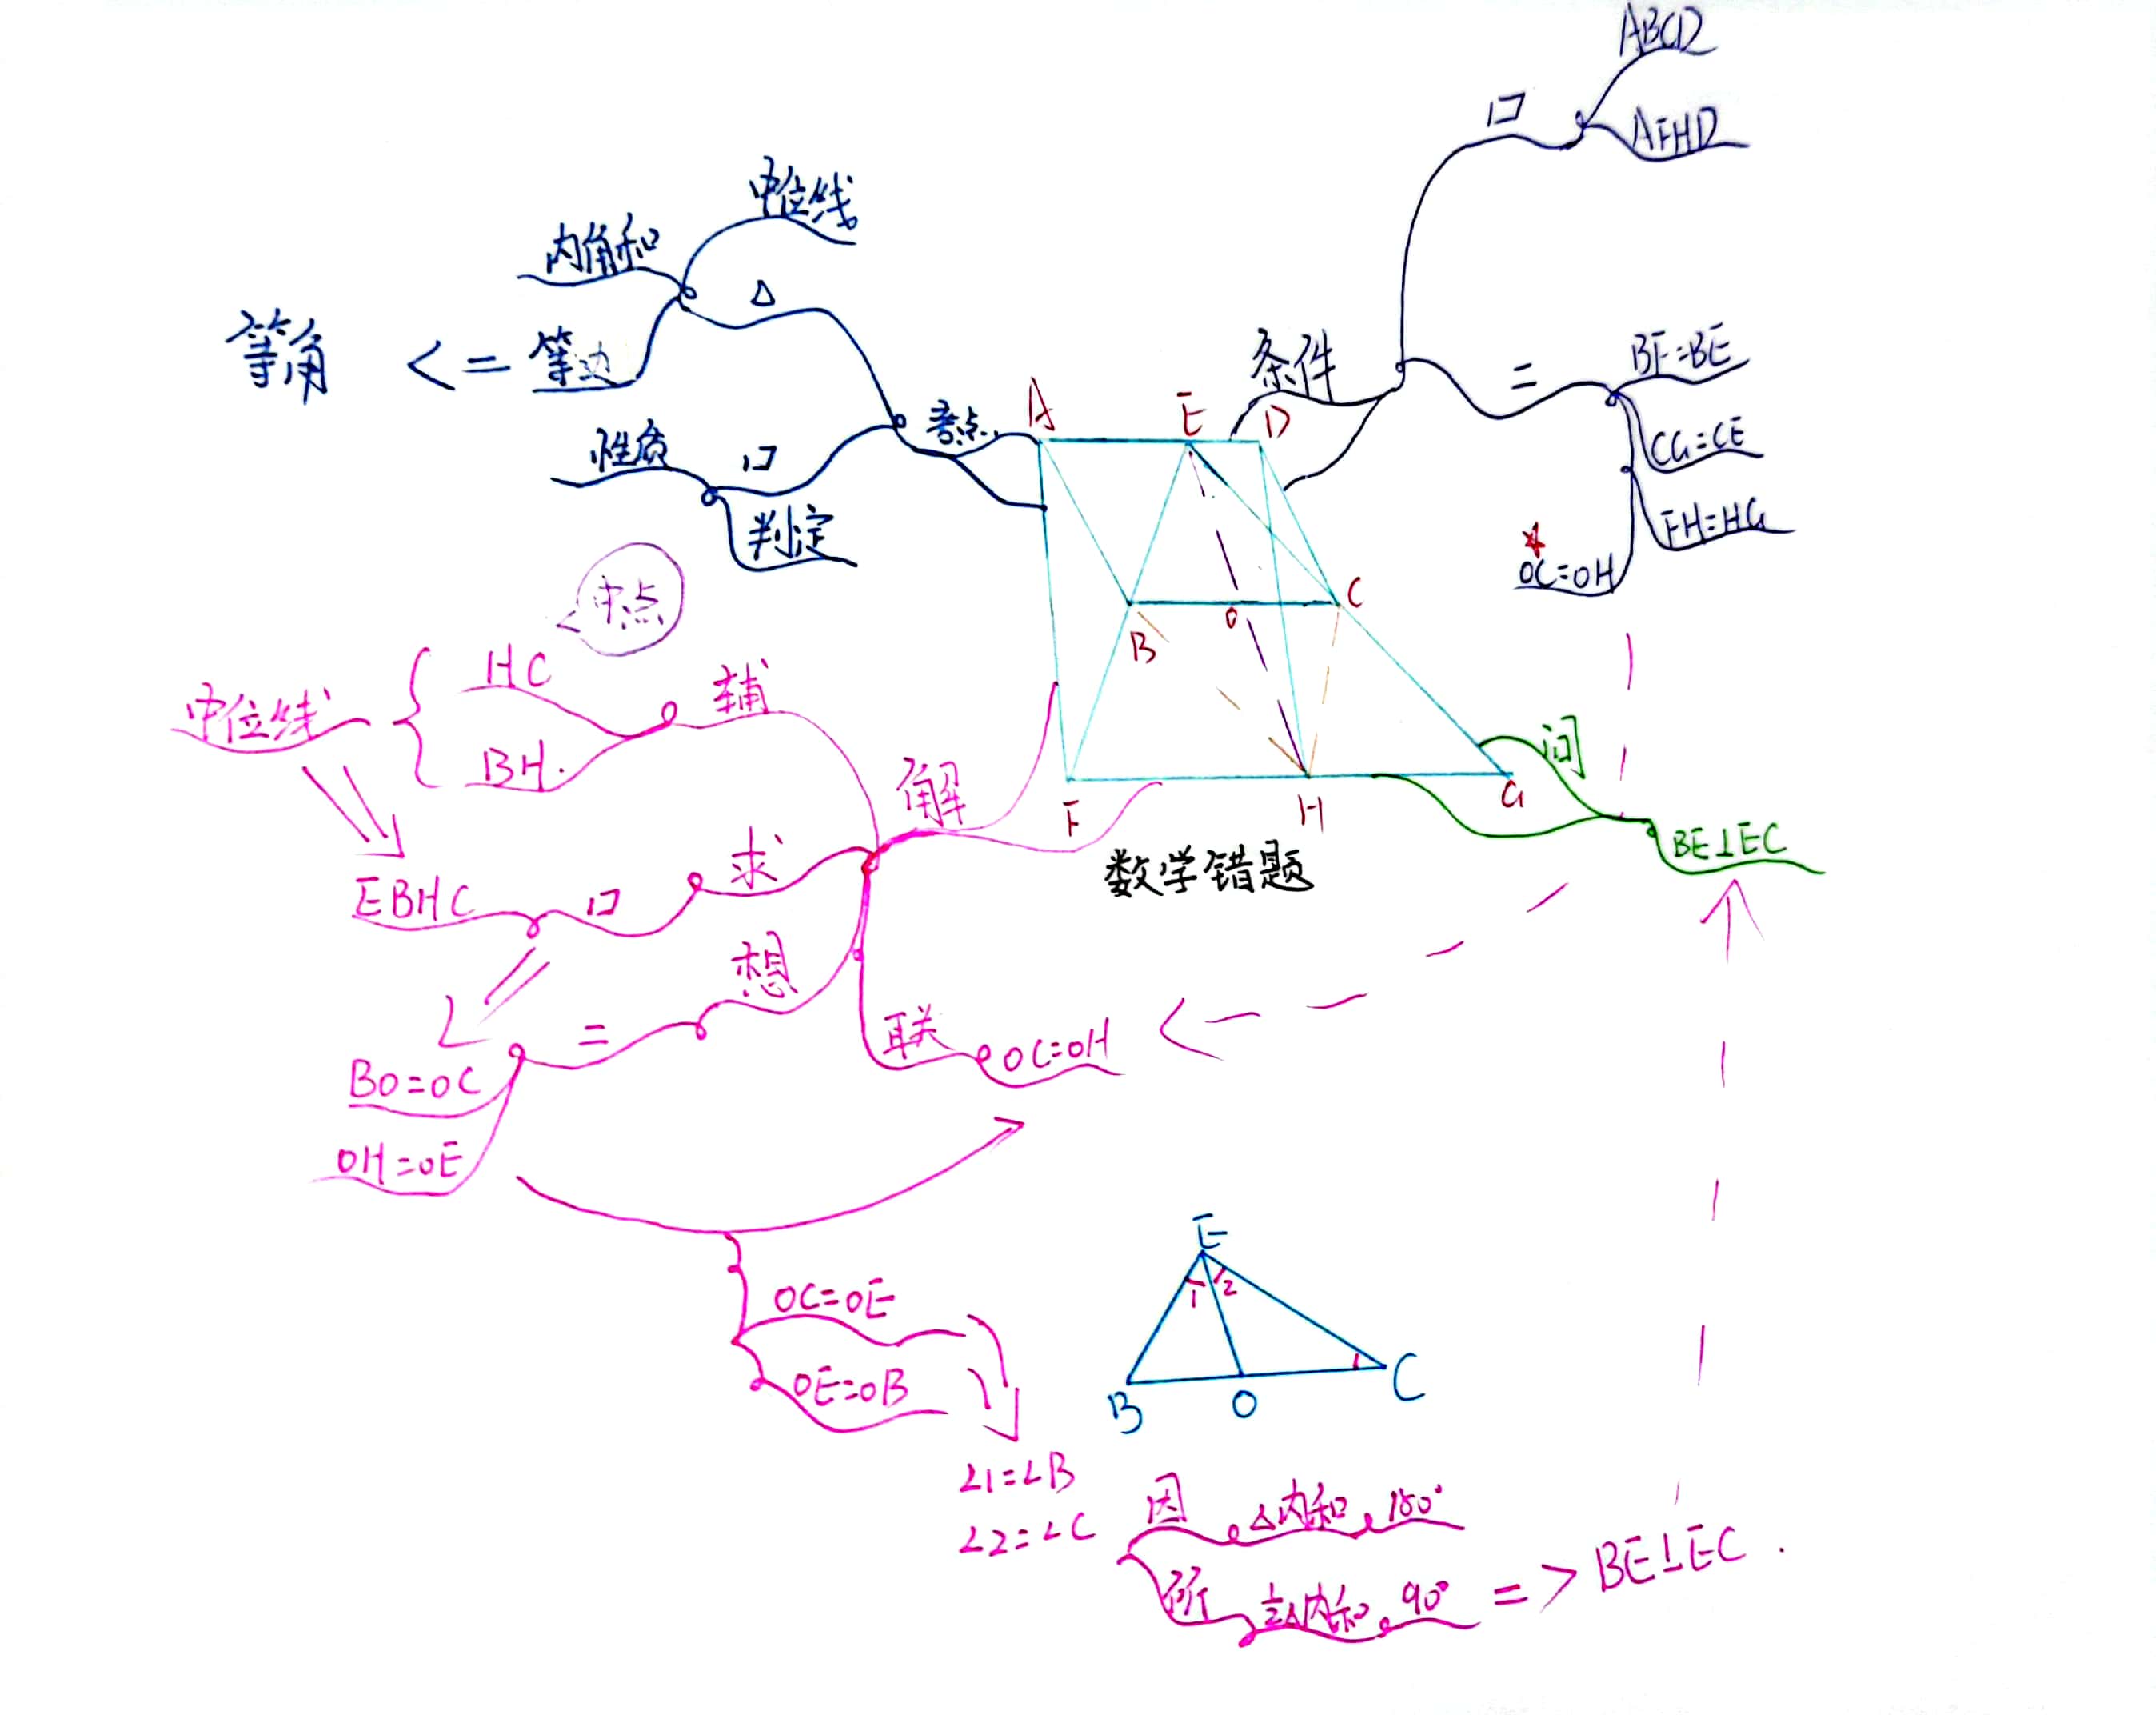 ABCD
口
AFHD
中位线
内角和
△
等角 <= 等边
条件
=
BF=BE
CG=CE
FH=HG
OC=OH
考点
性质
口
判定
A
E
D
B
O
C
F
H
G
数学错题
问
BE⊥EC
中点
HC
中位线
BH.
辅
解
求
EBHC
口
想
=
联
OC=OH
BO=OC
OH=OE
OC=OE
OE=OB
∠1=∠B
∠2=∠C
E
1 2
B
O
C
因 △内和 180°
所 ½△内和 90° => BE⊥EC.